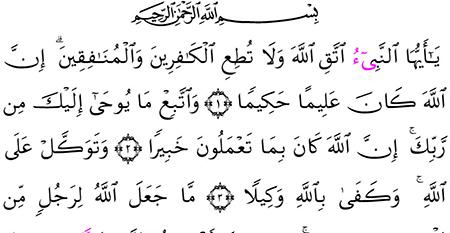 بِسْمِ ٱللَّهِ ٱلرَّحْمَٰنِ ٱلرَّحِيمِ
يَـٰٓأَيُّهَا ٱلنَّبِىٓءُ ٱتَّقِ ٱللَّهَ وَلَا تُطِعِ ٱلْكَـٰفِرِينَ وَٱلْمُنَـٰفِقِينَ ۗ إِنَّ
ٱللَّهَ كَانَ عَلِيمًا حَكِيمًا ﴿١﴾ وَٱتَّبِعْ مَا يُوحَىٰٓ إِلَيْكَ مِن
رَّبِّكَ ۚ إِنَّ ٱللَّهَ كَانَ بِمَا تَعْمَلُونَ خَبِيرًا ﴿٢﴾ وَتَوَكَّلْ عَلَى
ٱللَّهِ ۚ وَكَفَىٰ بِٱللَّهِ وَكِيلًا ﴿٣﴾ مَّا جَعَلَ ٱللَّهُ لِرَجُلٍ مِّن